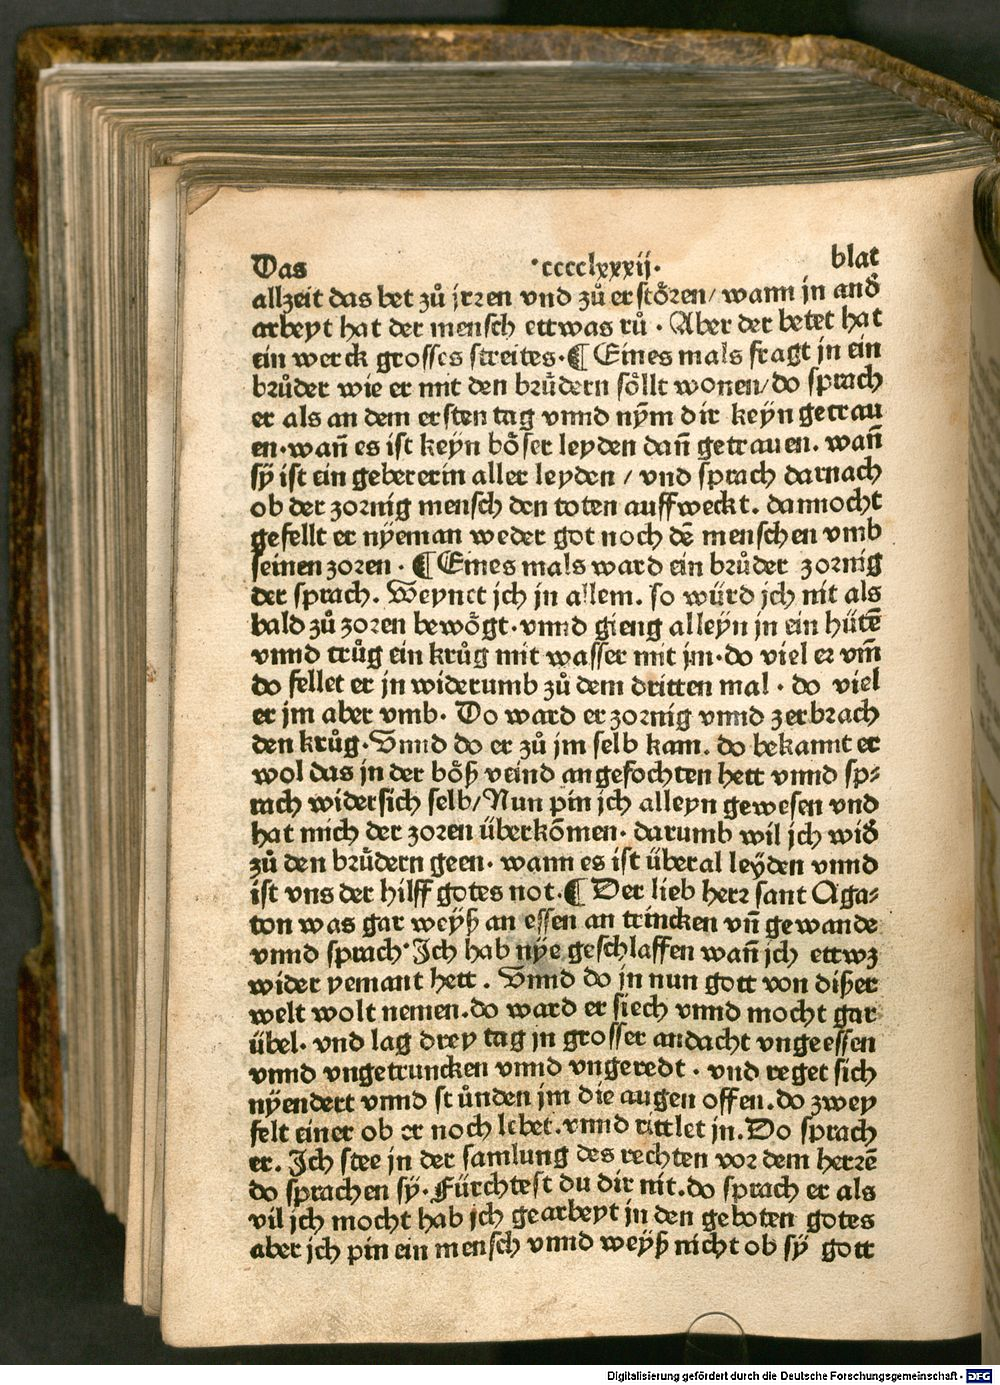 Das ·cccclxxxij· blat
allzeit das bet zů jrren vnd zů erstören/ wann in and᷑
arbeyt hat der mensch ettwas rů · Aber der betet hat
ein werck grosses streites·¶ Eines mals fragt jn ein
brůder wie er mit den brůdern söllt wonen/do sprach
er als an dem ersten tag vnnd nÿm dir keÿn getrau
en·wañ es ist keÿn böser leyden dañ getrauen. wañ
sÿ ist ein gebererin aller leyden / vnd sprach darnach
ob der zornig mensch den toten auffweckt. dannocht
gefellt er nÿeman weder got noch dē menschen vmb
seinen zoren · ¶ Eines mals ward ein brůder zornig
der sprach. Weynet jch jn allem. so würd jch nit als
bald zů zoren bewögt·vnnd gieng alleÿn jn ein hütē
vnnd trůg ein krůg mit wasser mit jm·do viel er vm̄
do fellet er jn widerumb zů dem dritten mal · do viel
er jm aber vmb· Do ward er zornig vnnd zerbrach
den krůg·Vnnd do er zů jm selb kam. do bekannt er
wol das jn der böß veind angefochten hett vnnd sp⸗
rach widersich selb/Nun pin jch alleyn gewesen vnd
hat mich der zoren überkōmen· darumb wil jch wid᷑
zů den brůdern geen· wann es ist überal leÿden vnnd
ist vns der hilff gotes not.¶ Der lieb herr sant Aga⸗
ton was gar weÿß an essen an trincken vñ gewande
vnnd sprach·Ich hab nÿe geschlaffen wañ jch ettwz
wider yemant hett . Vnnd do jn nun gott von dißer
welt wolt nemen.do ward er siech vnnd mocht gar
übel· vnd lag drey tag jn grosser andacht vngeessen
vnnd vngetruncken vnnd vngeredt · vnd reget sich
nÿendert vnnd stůnden jm die augen offen.do zwey
felt einer ob er noch lebet.vnnd rittlet jn.Do sprach
er. Ich stee in der samlung des rechten vor dem herrē
do sprachen sÿ·Fürchtest du dir nit.do sprach er als
vil jch mocht hab jch gearbeyt in den geboten gotes
aber jch pin ein mensch vnnd weÿß nicht ob sÿ gott
Digitalisierung gefördert durch die Deutsche Forschungsgemeinschaft - DFG